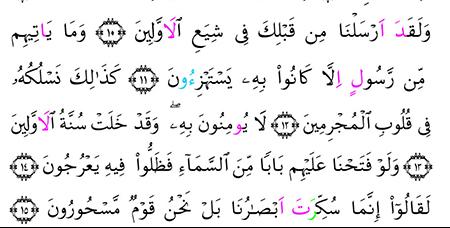 وَلَقَدَ اَرْسَلْنَا مِن قَبْلِكَ فِى شِيَعِ اِ۬لَاوَّلِينَ ۝١٠ وَمَا يَاتِيهِم
مِّن رَّسُولٍ اِلَّا كَانُوا۟ بِهِۦ يَسْتَهْزِءُونَ ۝١١ كَذَٰلِكَ نَسْلُكُهُۥ
فِى قُلُوبِ اِ۬لْمُجْرِمِينَ ۝١٢ لَا يُومِنُونَ بِهِۦۖ وَقَدْ خَلَتْ سُنَّةُ اُ۬لَاوَّلِينَ
۝١٣ وَلَوْ فَتَحْنَا عَلَيْهِم بَابًا مِّنَ اَ۬لسَّمَآءِ فَظَلُّوا۟ فِيهِ يَعْرُجُونَ ۝١٤
لَقَالُوٓا۟ إِنَّمَا سُكِّرَتَ اَبْصَٰرُنَا بَلْ نَحْنُ قَوْمٌ مَّسْحُورُونَ ۝١٥